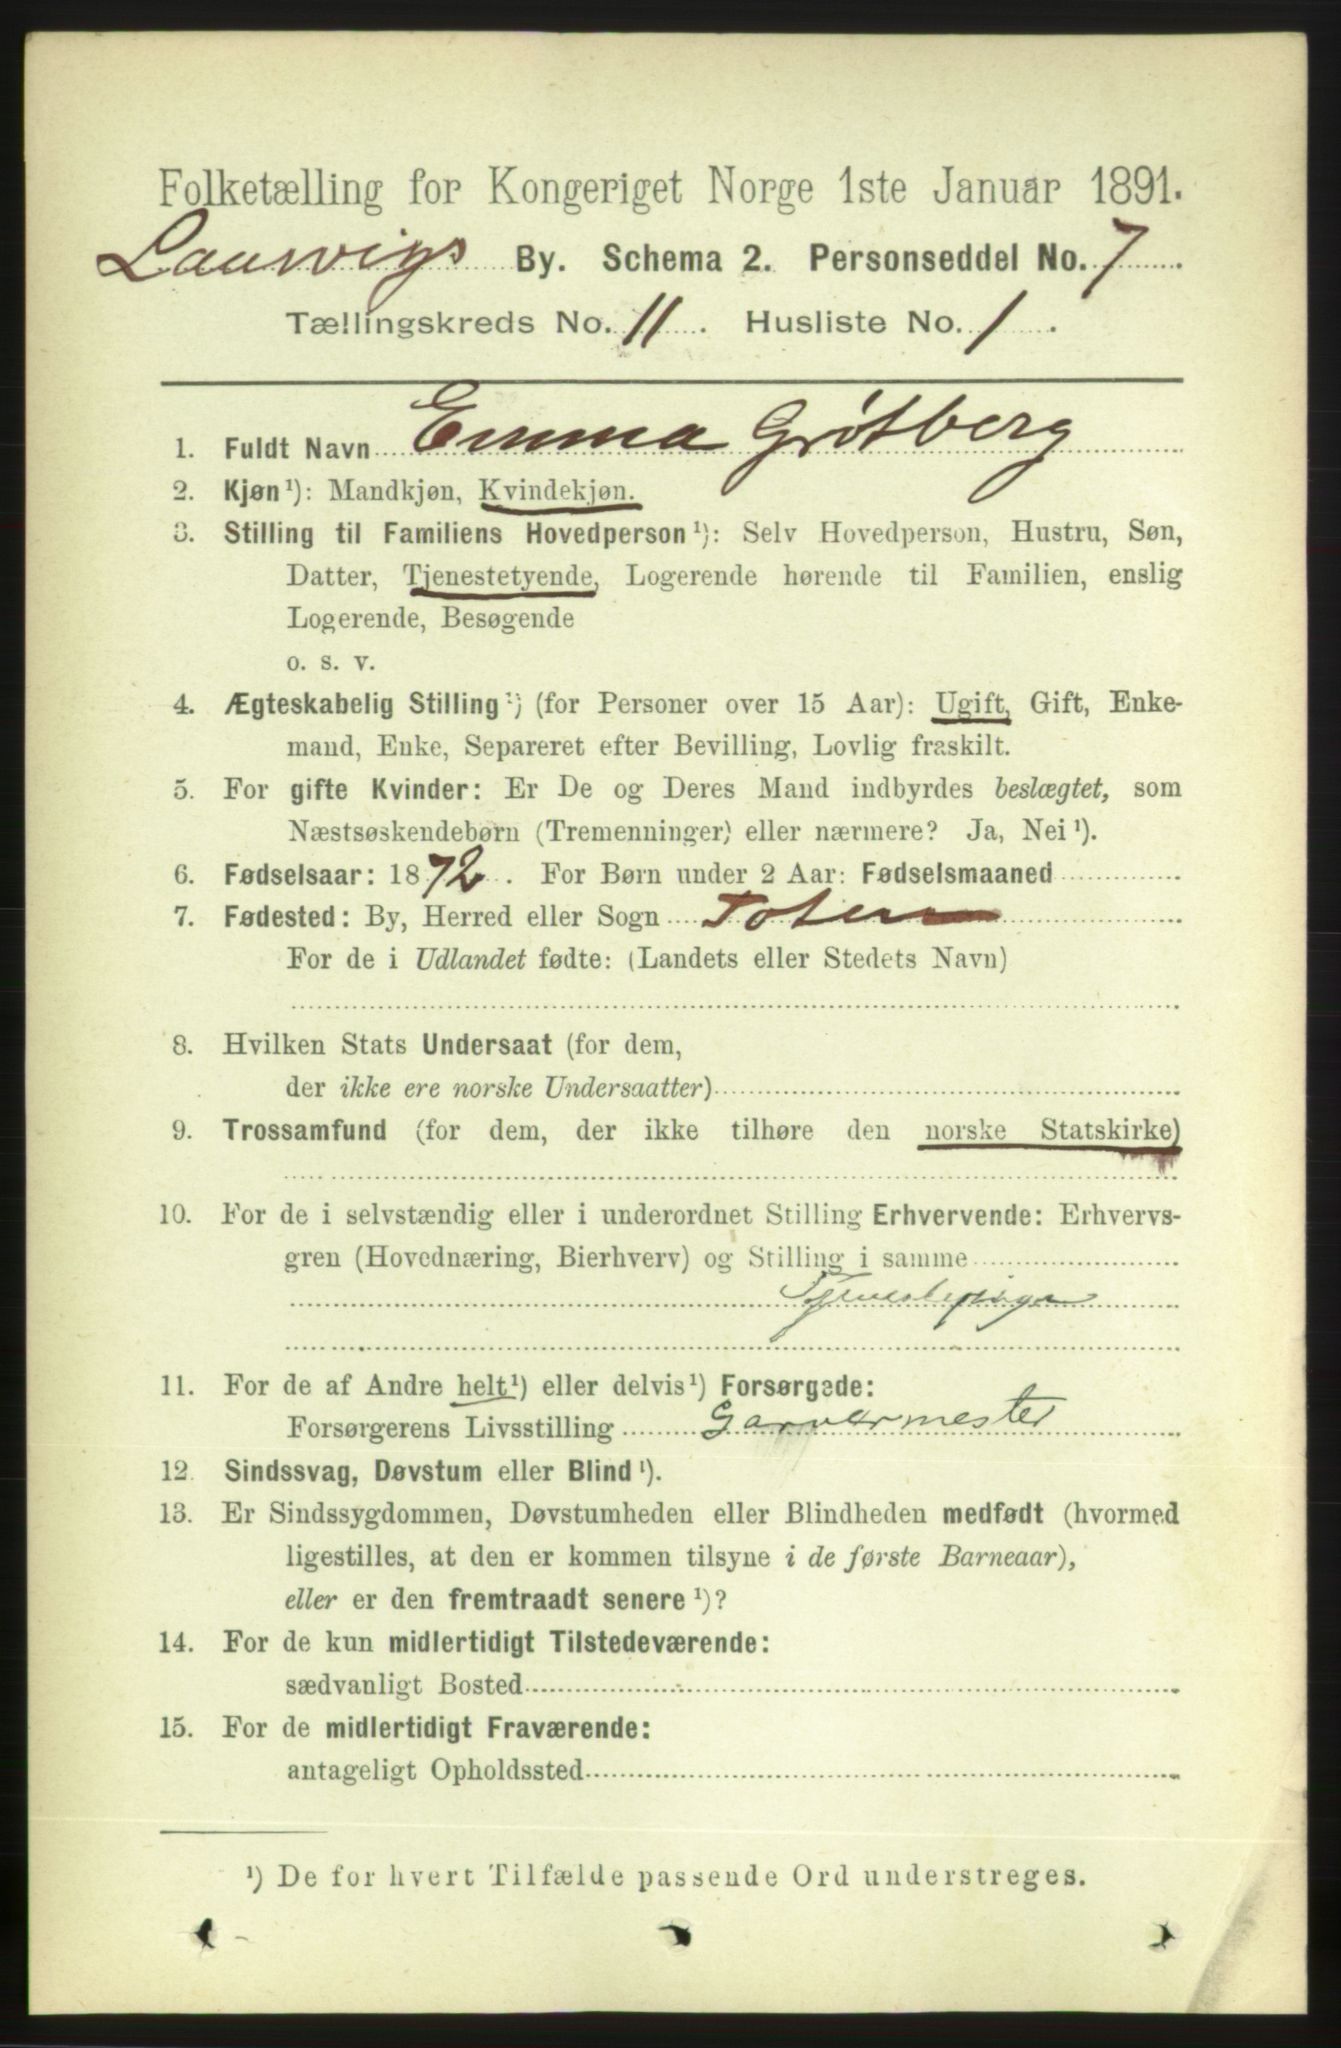 Folketælling for Kongeriget Norge 1ste Januar 1891.
Laurvigs By. Schema 2. Personseddel No. 7
Tællingskreds No. 11. Husliste No. 1.
1. Fuldt Navn Emma Grøtberg
2. Kjøn¹): Mandkjøn, Kvindekjøn.
3. Stilling til Familiens Hovedperson¹): Selv Hovedperson, Hustru, Søn,
Datter, Tjenestetyende, Logerende hørende til Familien, enslig
Logerende, Besøgende
o. s. v.
4. Ægteskabelig Stilling¹) (for Personer over 15 Aar): Ugift, Gift, Enke-
mand, Enke, Separeret efter Bevilling, Lovlig fraskilt.
5. For gifte Kvinder: Er De og Deres Mand indbyrdes beslægtet, som
Næstsøskendebørn (Tremenninger) eller nærmere? Ja, Nei¹).
6. Fødselsaar: 1872. For Børn under 2 Aar: Fødselsmaaned
7. Fødested: By, Herred eller Sogn Toten
For de i Udlandet fødte: (Landets eller Stedets Navn)
8. Hvilken Stats Undersaat (for dem,
der ikke ere norske Undersaatter)
9. Trossamfund (for dem, der ikke tilhøre den norske Statskirke)
10. For de i selvstændig eller i underordnet Stilling Erhvervende: Erhvervs-
gren (Hovednæring, Bierhverv) og Stilling i samme
Tjenestepige
11. For de af Andre helt¹) eller delvis¹) Forsørgede:
Forsørgerens Livsstilling Garvermester
12. Sindssvag, Døvstum eller Blind¹).
13. Er Sindssygdommen, Døvstumheden eller Blindheden medfødt (hvormed
ligestilles, at den er kommen tilsyne i de første Barneaar),
eller er den fremtraadt senere¹)?
14. For de kun midlertidigt Tilstedeværende:
sædvanligt Bosted
15. For de midlertidigt Fraværende:
antageligt Opholdssted
¹) De for hvert Tilfælde passende Ord understreges.